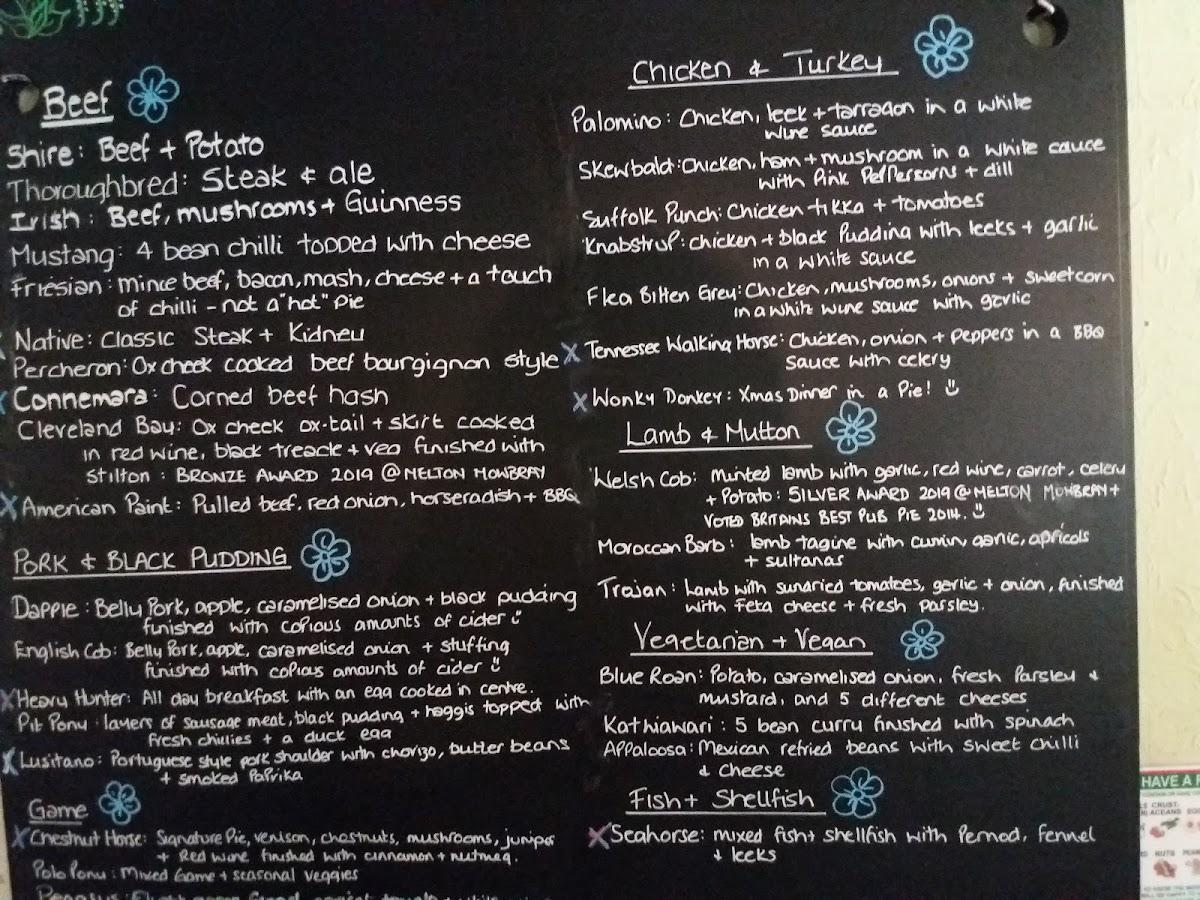 Beef
Shire: Beef + Potato
Thoroughbred: Steak & ale
Irish: Beef, mushrooms + Guinness
Mustang: 4 bean chilli topped with cheese
Friesian: mince beef, bacon, mash, cheese + a touch
of chilli - not a "hot" pie
Native: Classic Steak + Kidney
Percheron: Ox cheek cooked beef bourgignon style
X Connemara: Corned beef hash
Cleveland Bay: Ox cheek ox-tail + skirt cooked
in red wine, black treacle + veg finished with
Stilton: BRONZE AWARD 2019 @ MELTON MOWBRAY
X American Paint: Pulled beef, red onion, horseradish + BBQ
PORK & BLACK PUDDING
Dapple: Belly Pork, apple, caramelised onion + black pudding
finished with copious amounts of cider
English Cob: Belly Pork, apple, caramelised onion + stuffing
finished with copious amounts of cider
X Heavy Hunter: All day breakfast with an egg cooked in centre.
Pit Pony: layers of sausage meat, black pudding + haggis topped with
fresh chillies + a duck egg
X Lusitano: Portuguese style pork shoulder with chorizo, butter beans
+ smoked Paprika
Game
X Chestnut Horse: Signature Pie, venison, chestnuts, mushrooms, juniper
+ Red wine finished with cinnamon + nutmeg.
Polo Pony: Mixed Game + seasonal veggies
Chicken & Turkey
Palomino: Chicken, leek + tarragon in a white
wine sauce
Skewbald: Chicken, ham + mushroom in a white sauce
with Pink Peppersorns + dill
Suffolk Punch: Chicken tikka + tomatoes
Knabstrup: chicken + black Pudding with leeks + garlic
in a white sauce
Flea Bitten Grey: Chicken, mushrooms, onions + sweetcorn
in a white wine sauce with garlic
X Tennessee Walking Horse: Chicken, onion + peppers in a BBQ
sauce with celery
X Wonky Donkey: Xmas Dinner in a Pie!
Lamb & Mutton
Welsh Cob: Minted lamb with garlic, red wine, carrot, celery
+ Potato: SILVER AWARD 2019 @ MELTON MOWBRAY +
VOTED BRITAINS BEST PUB PIE 2014.
Moroccan Barb: lamb tagine with cumin, garlic, apricots
+ sultanas
Trojan: Lamb with sundried tomatoes, garlic + onion, finished
with Feta cheese + fresh parsley.
Vegetarian + Vegan
Blue Roan: Potato, caramelised onion, fresh Parsley &
mustard, and 5 different cheeses
Kathiawari: 5 bean curry finished with spinach
Appaloosa: Mexican refried beans with sweet chilli
& cheese
Fish + Shellfish
X Seahorse: mixed fish + shellfish with Pernod, fennel
& leeks
HAVE A
CRUST
NUTS